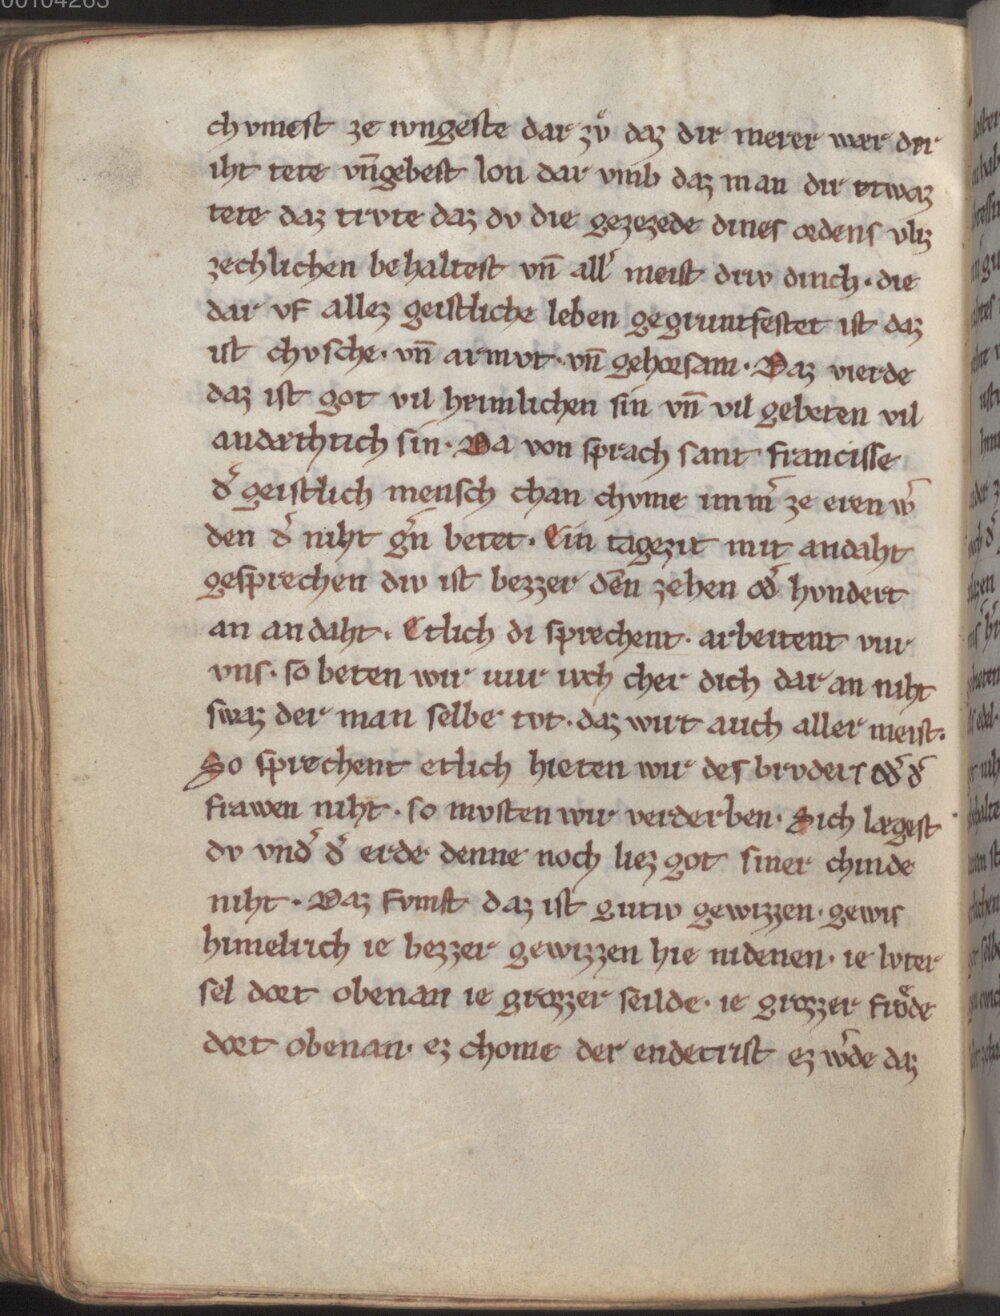 00104263
chvmest ze ivngeste dar zvͦ daz dir merer wær der
iht tete vn̄gebest lon dar vmb daz man dir etwaz
tete daz trvte daz dv die gezezede dines ordens vliz
zechlichen behaltest vn̄ all᾽ meist driv dinch · die
dar vf allez geistliche leben gegruntfestet ist daz
ist chvsche · vn̄ armvt · vn̄ gehorsam · Daz vierde
daz ist got vil heimlichen sin vn̄ vil gebeten vil
andæchtich sin · Da von sprach sant francisse
d᾽ geistlich mensch chan chvme imm᾽ ze eren w᾽
den d᾽ niht g᾽n betet · Ein tagezit mit andaht
gesprechen div ist bezzer den̄ zehen od᾽ hvndert
an andaht · Etlich di sprechent · arbeitent vur
vns · so beten wir vur iwch cher dich dar an niht
swaz der man selbe tvt · daz wirt auch aller meist ·
So sprechent etlich hieten wir des brvders od᾽ d᾽
frawen niht · so mvsten wir verderben · Sich lægest
dv vnd᾽ d᾽ erde denne noch liez got siner chinde
niht · Daz fvmft daz ist gutiv gewizzen · gewis
himelrich ie bezzer gewizzen hie nidenen · ie lvter
sel dort obenan ie grozzer seilde · ie grozzer frævde
dort obenan · ez chome der endecrist ez w᾽de daz